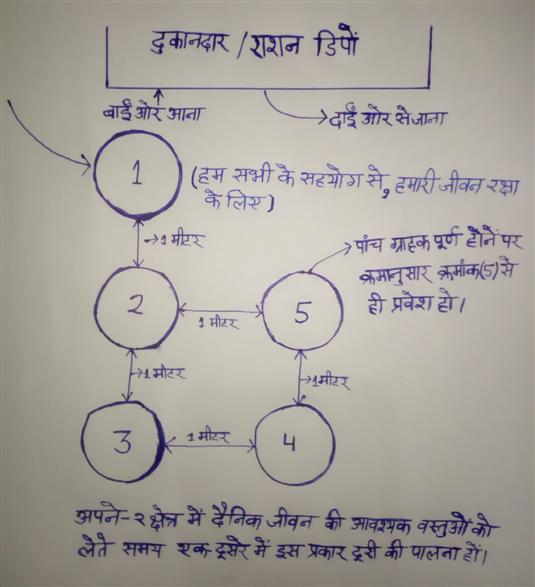 दुकानदार / राशन डिपों
बाईं ओर आना
दाईं ओर से जाना
1
(हम सभी के सहयोग से, हमारी जीवन रक्षा
के लिए)
1 मीटर
पांच ग्राहक पूर्ण होने पर
क्रमानुसार क्रमांक(5) से
ही प्रवेश हो।
2
1 मीटर
5
1 मीटर
1 मीटर
3
1 मीटर
4
अपने-२ क्षेत्र में दैनिक जीवन की आवश्यक वस्तुओं को
लेते समय एक दूसरे में इस प्रकार दूरी की पालना हों।